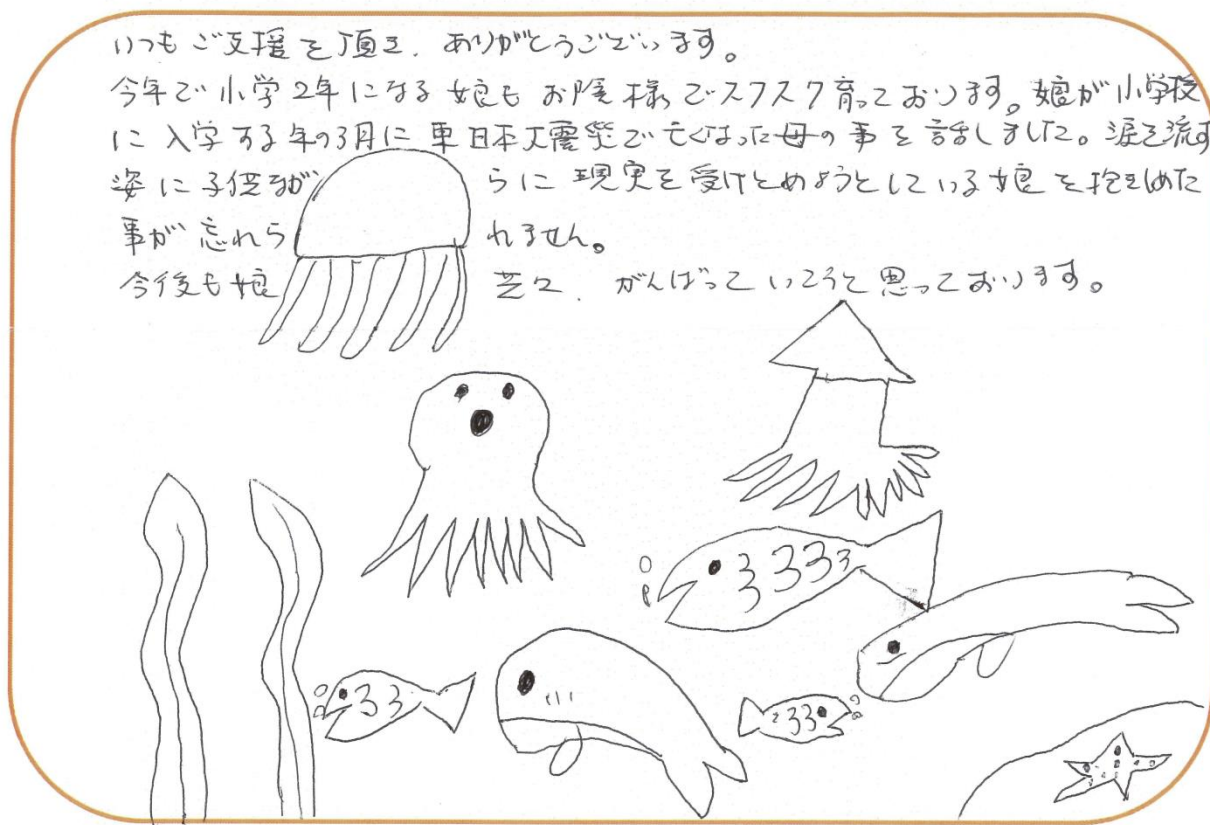 いつもご支援を頂き、ありがとうございます。
今年で小学2年になる娘もお陰様でスクスク育っております。娘が小学校
に入学する年の3月に東日本大震災で亡くなった母の事を話しました。涙を流す
姿に子供ながらに現実を受けとめようとしている娘を抱きしめた
事が忘れられません。
今後も娘共々、がんばっていこうと思っております。